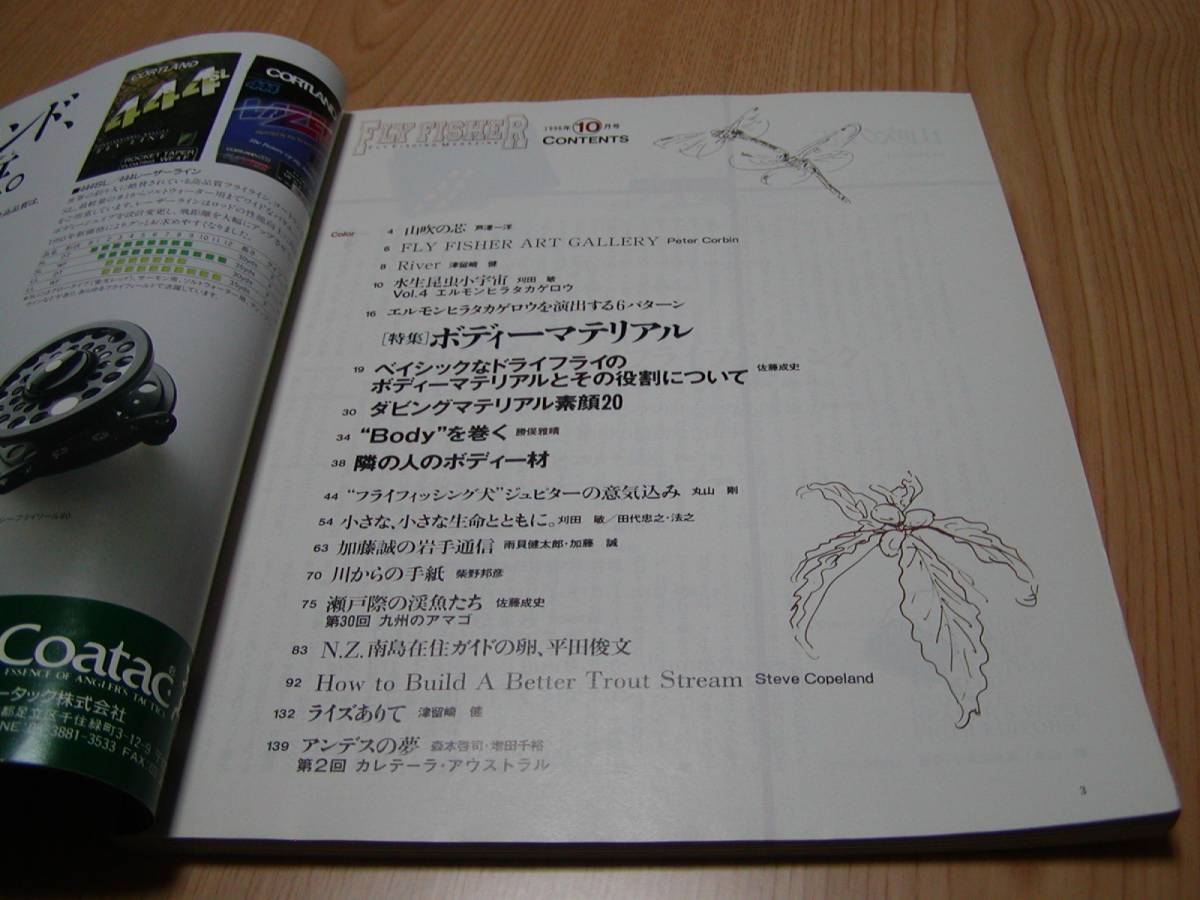 CORTLAND
444SL
ROCKET TAPER
CORTLAND
444
ンド、
■444SL 444レーザーライン
Coatac
ESSENCE OF ANGLER'S TACTICS
ータック株式会社
都足立区千住緑町3-12-9
NE 03-3881-3533 FAX
FLY FISHER
1996年10月号
CONTENTS
Color
4 山吹の芯 芦澤一洋
6 FLY FISHER ART GALLERY Peter Corbin
8 River 津留崎 健
10 水生昆虫小宇宙 刈田 敏
Vol.4 エルモンヒラタカゲロウ
16 エルモンヒラタカゲロウを演出する6パターン
[特集]ボディーマテリアル
19 ベイシックなドライフライの
ボディーマテリアルとその役割について 佐藤成史
30 ダビングマテリアル素顔20
34 “Body”を巻く 勝俣雅晴
38 隣の人のボディー材
44 “フライフィッシング犬”ジュピターの意気込み 丸山 剛
54 小さな、小さな生命とともに。 刈田 敏/田代忠之・法之
63 加藤誠の岩手通信 雨貝健太郎・加藤 誠
70 川からの手紙 柴野邦彦
75 瀬戸際の渓魚たち 佐藤成史
第30回 九州のアマゴ
83 N.Z.南島在住ガイドの卵、平田俊文
92 How to Build A Better Trout Stream Steve Copeland
132 ライズありて 津留崎 健
139 アンデスの夢 森本啓司・増田千裕
第2回 カレテーラ・アウストラル
3